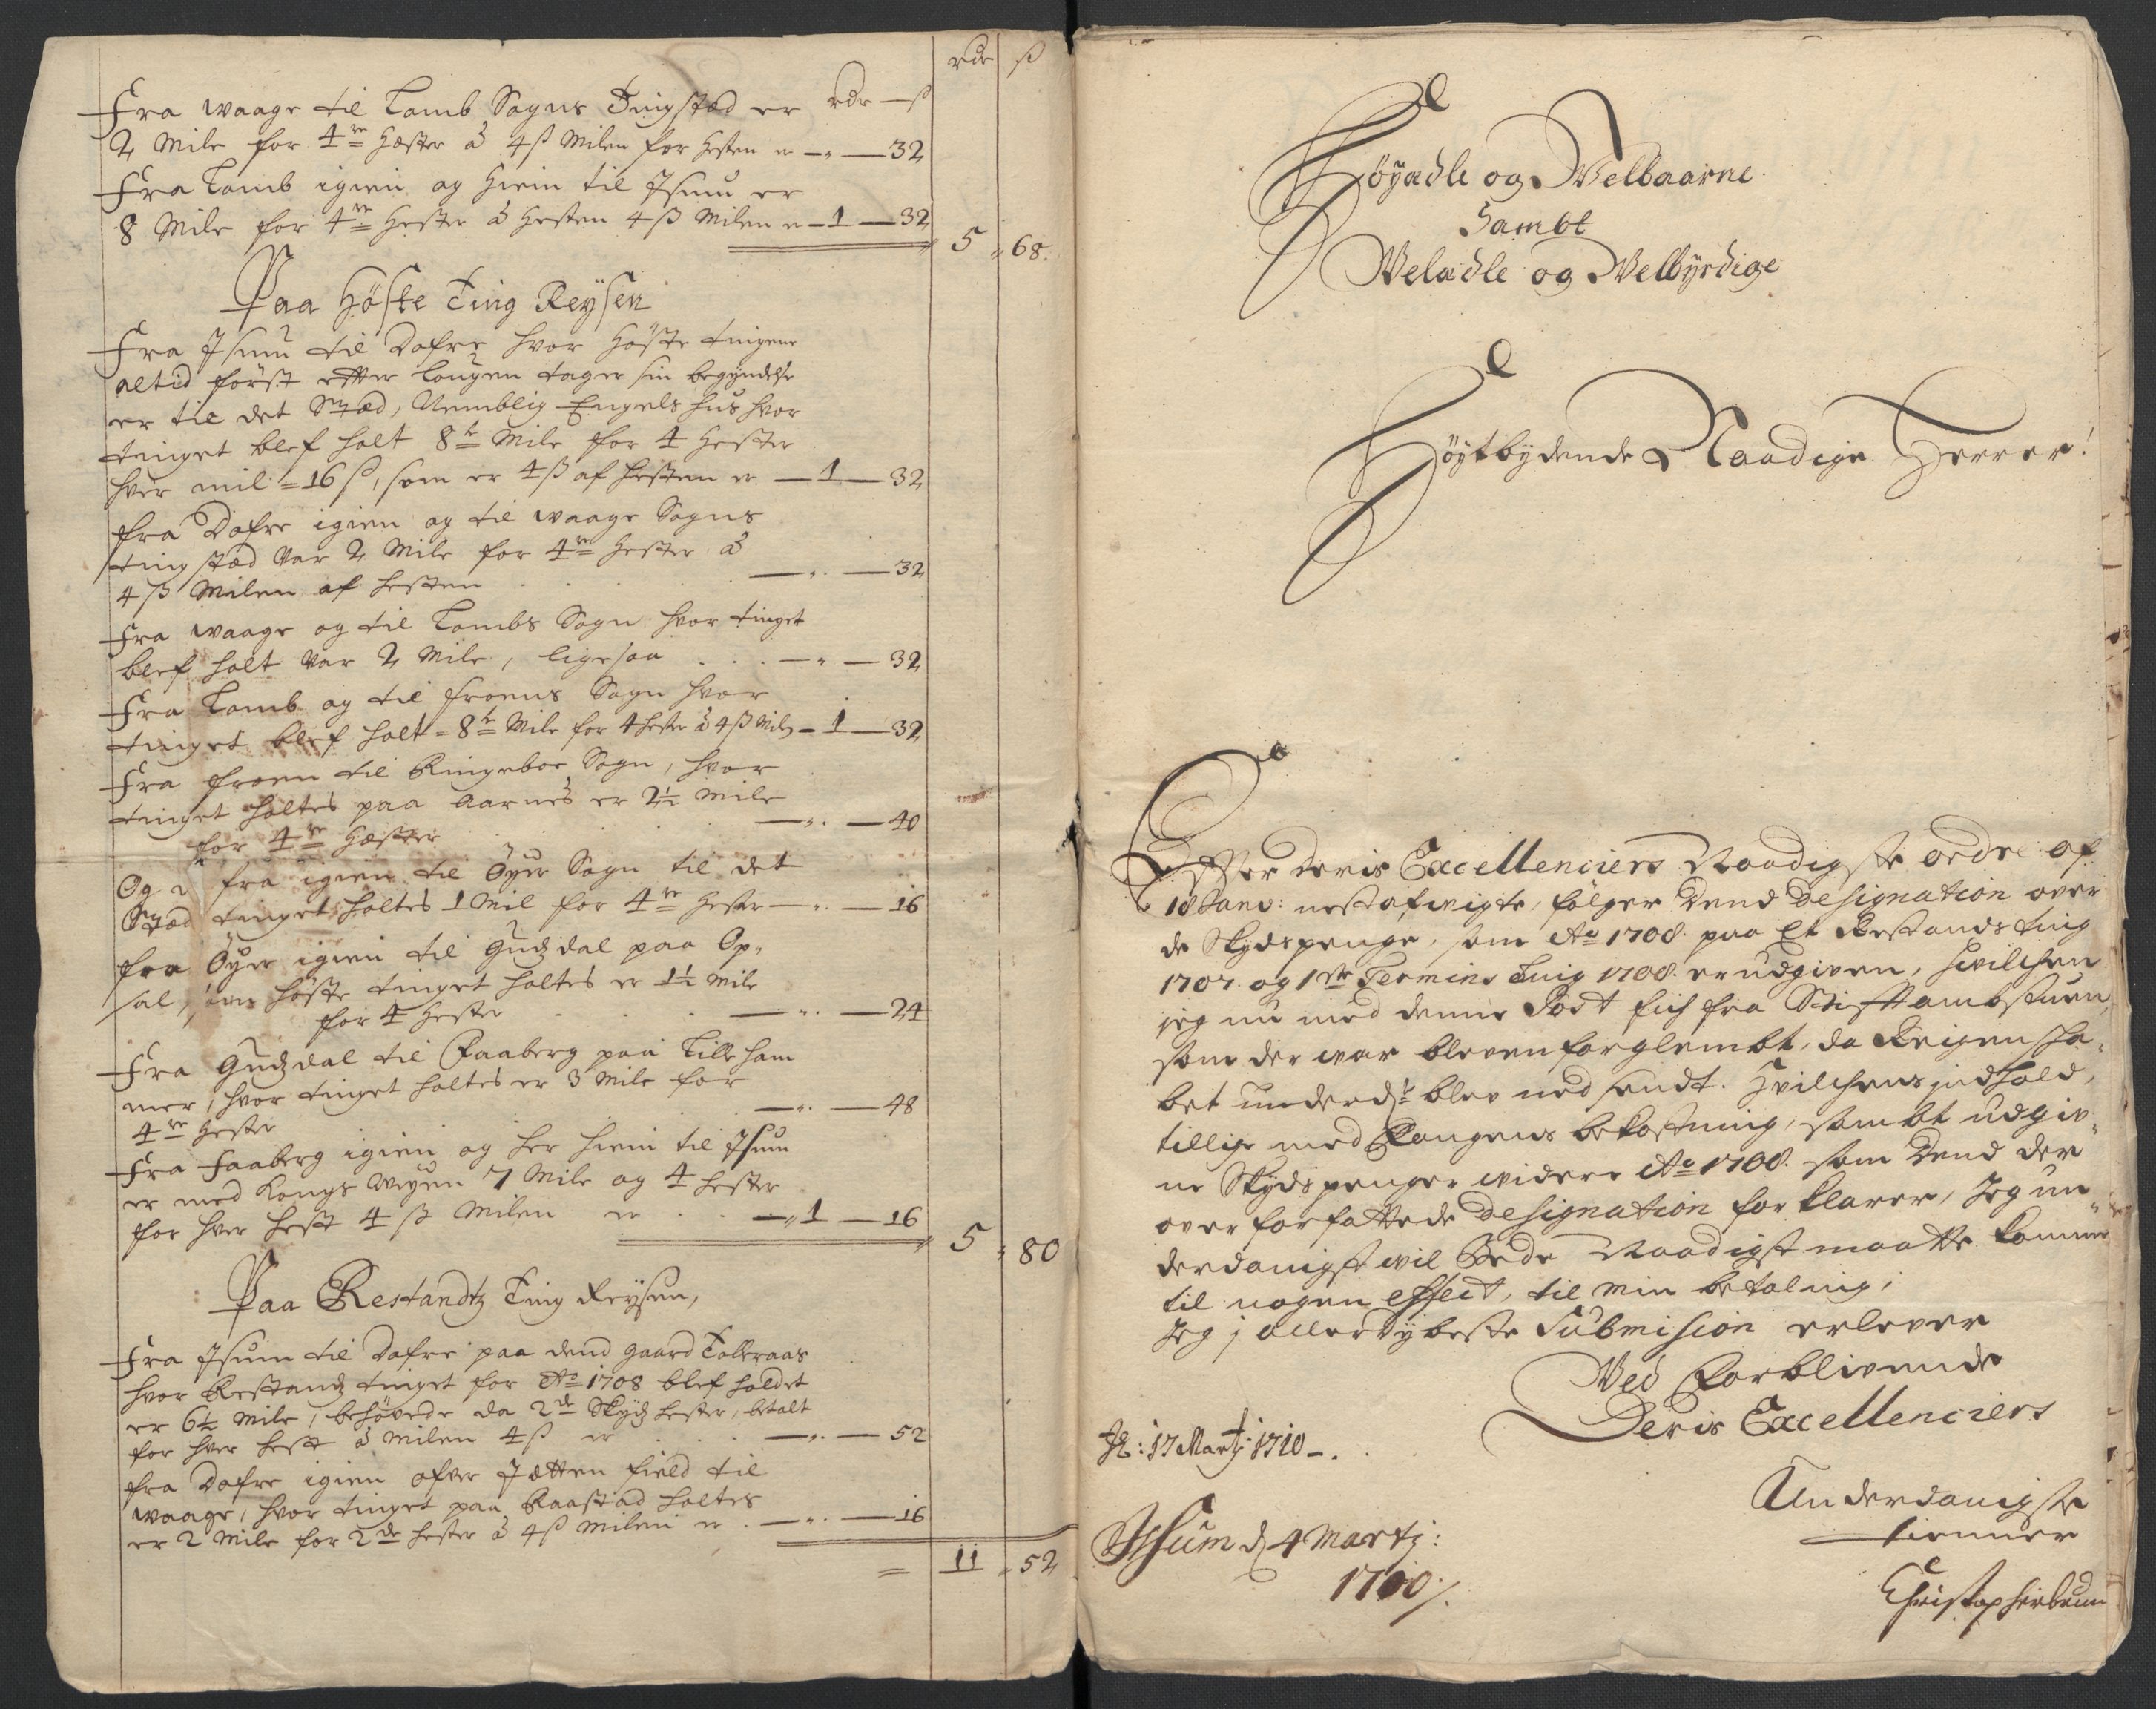 rdr ß
Fra Waage til Lomb Sogns Tingstæd er rdr — ß
2 Mile for 4re Hæster à 4 ß Milen for Hesten er — " — 32
Fra Lomb igien og Hiem til Isum er
8 Mile for 4re Hester à Hesten 4 ß Milen er — 1 — 32
5 " 68.
Paa Höste Ting Reÿsen
Fra Isum til Dofre hvor Höste tingene
altid först efter Lougen tager sin begyndelse
er til det Stæd, Nemblig Engelshus hvor
tinget blef holt 8te Mile for 4 Hester
hver mil = 16 ß, som er 4 ß af Hesten er — 1 — 32
fra Dofre igien og til Waage Sogns
tingstæd var 2 Mile for 4re Hester à
4 ß Milen af hesten — " — 32
Fra Waage og til Lombs Sogn hvor tinget
blef holt var 2 Mile, ligesaa . . . — " — 32
Fra Lomb og til froens Sogn hvor
tinget blef holt = 8te Mile for 4 hester à 4 ß Milen — 1 — 32
Fra froen til Ringeboe Sogn, hvor
tinget holtes paa Aarnes er 2½ Mile
for 4re Hæster — " — 40
Og fra igien til Öyer Sogn til det
Stæd tinget holtes 1 Mil for 4re Hester — " — 16
fra Öyer igien til Gudzdal paa Op-
sal, hvor höste tinget holtes er 1½ Mile
for 4 Hester — " — 24
Fra Gudzdal til Faaberg paa Lilleham
mer, hvor tinget holtes er 3 Mile for
4re Hester — " — 48
Fra Faaberg igien og her hiem til Isum
er med Kongeveÿen 7 Mile og 4 hester
for hver hest 4 ß Milen er . . — " 1 — 16
5 " 80
Paa Restandtz Ting Reÿsen,
Fra Isum til Dofre paa dend gaard Tofteraas
hvor Restandz tinget for Ao 1708 blef holdet
er 6½ Mile, behövede da 2de Skydz hester, betalt
for hver hest à Milen 4 ß er — " — 52
fra Dofre igien ofver Jetten field til
Waage, hvor tinget paa Raastad holtes
er 2 Mile for 2de hester à 4 ß Milen er . — " — 16
= 11 " 52
Höyædle og Welbaarne
Sambt
Welædle og Welbÿrdige
Höÿtbydende Naadige Herrer!
Effter deris Excellenciers Naadigste ordre af
18 Janv: nestafvigte, fölger dend Designation over
de Skydspenge, som Ao 1708 paa et Restands ting
1707 og 1ste Termins Ting 1708 er udgiven, hvilchen
jeg nu med denne Post fich fra Stifftambstuen,
som der var bleven forglembt, da Reigenska-
bet underd:t blev ned sendt. Hvilchens jndhold,
tillige med Fangens bekostning, sambt udgiv-
ne Skydspenge videre Ao 1708 som dend der
over forfattede Designation forklarer, Jeg un-
derdanigst vil bede Naadigst maatte komme
til nogen effect, til min betaling,
Jeg j allerdÿbeste Submision erlever
Ved Forblivende
Deris Excellenciers
17 Martj 1710 —.
Underdanigste
tienner
Isum d 4 Martj:
1710 /.
Christopher